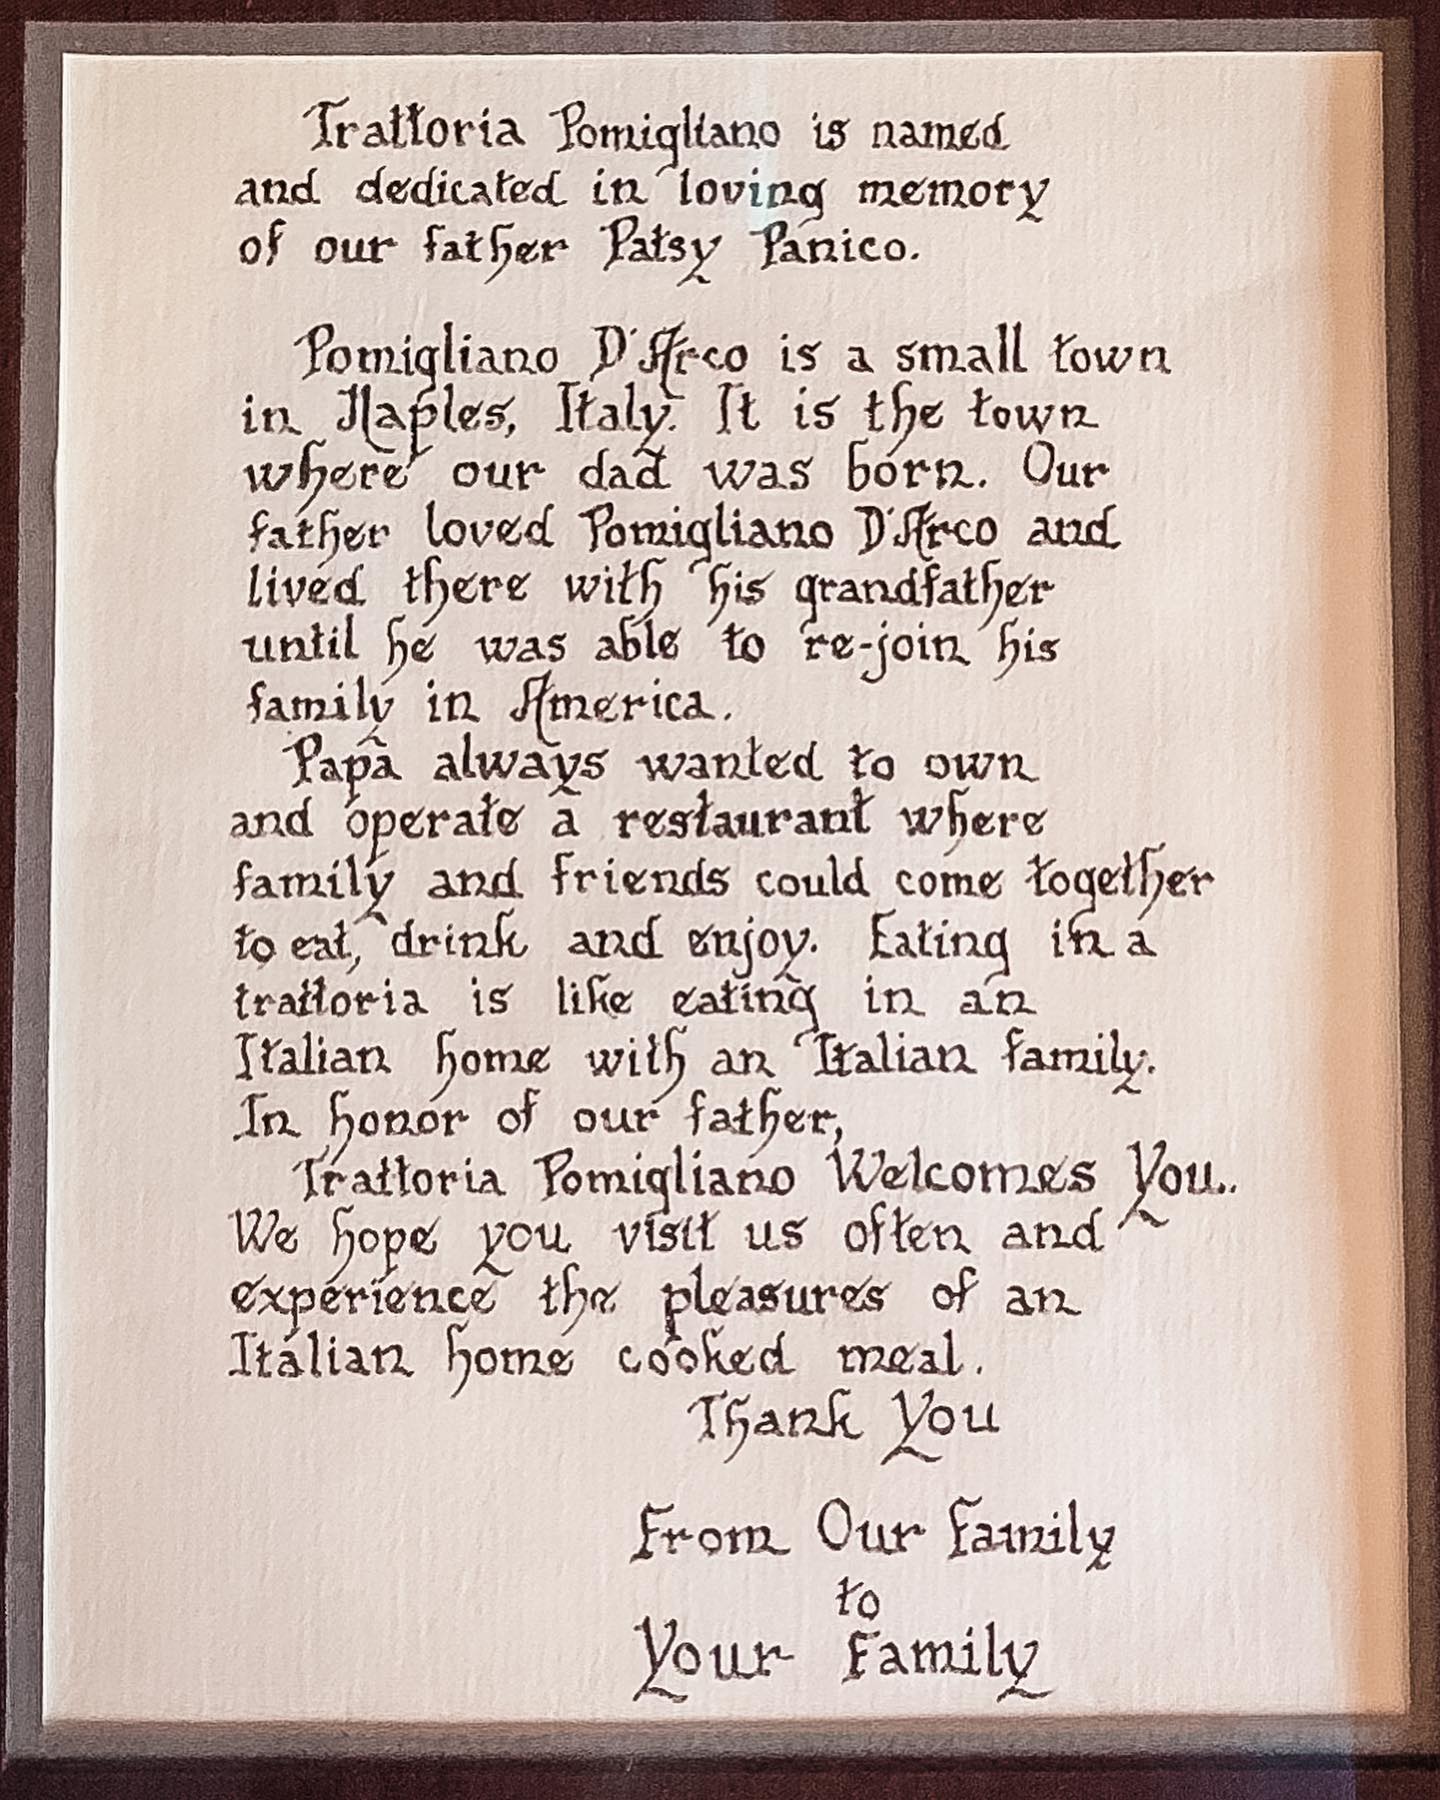 Trattoria Pomigliano is named
and dedicated in loving memory
of our father Patsy Panico.
Pomigliano D'Arco is a small town
in Naples, Italy. It is the town
where our dad was born. Our
father loved Pomigliano D'Arco and
lived there with his grandfather
until he was able to re-join his
family in America.
Papa always wanted to own
and operate a restaurant where
family and friends could come together
to eat, drink and enjoy. Eating in a
trattoria is like eating in an
Italian home with an Italian family.
In honor of our father,
Trattoria Pomigliano Welcomes You..
We hope you visit us often and
experience the pleasures of an
Italian home cooked meal.
Thank You
From Our Family
to
Your Family